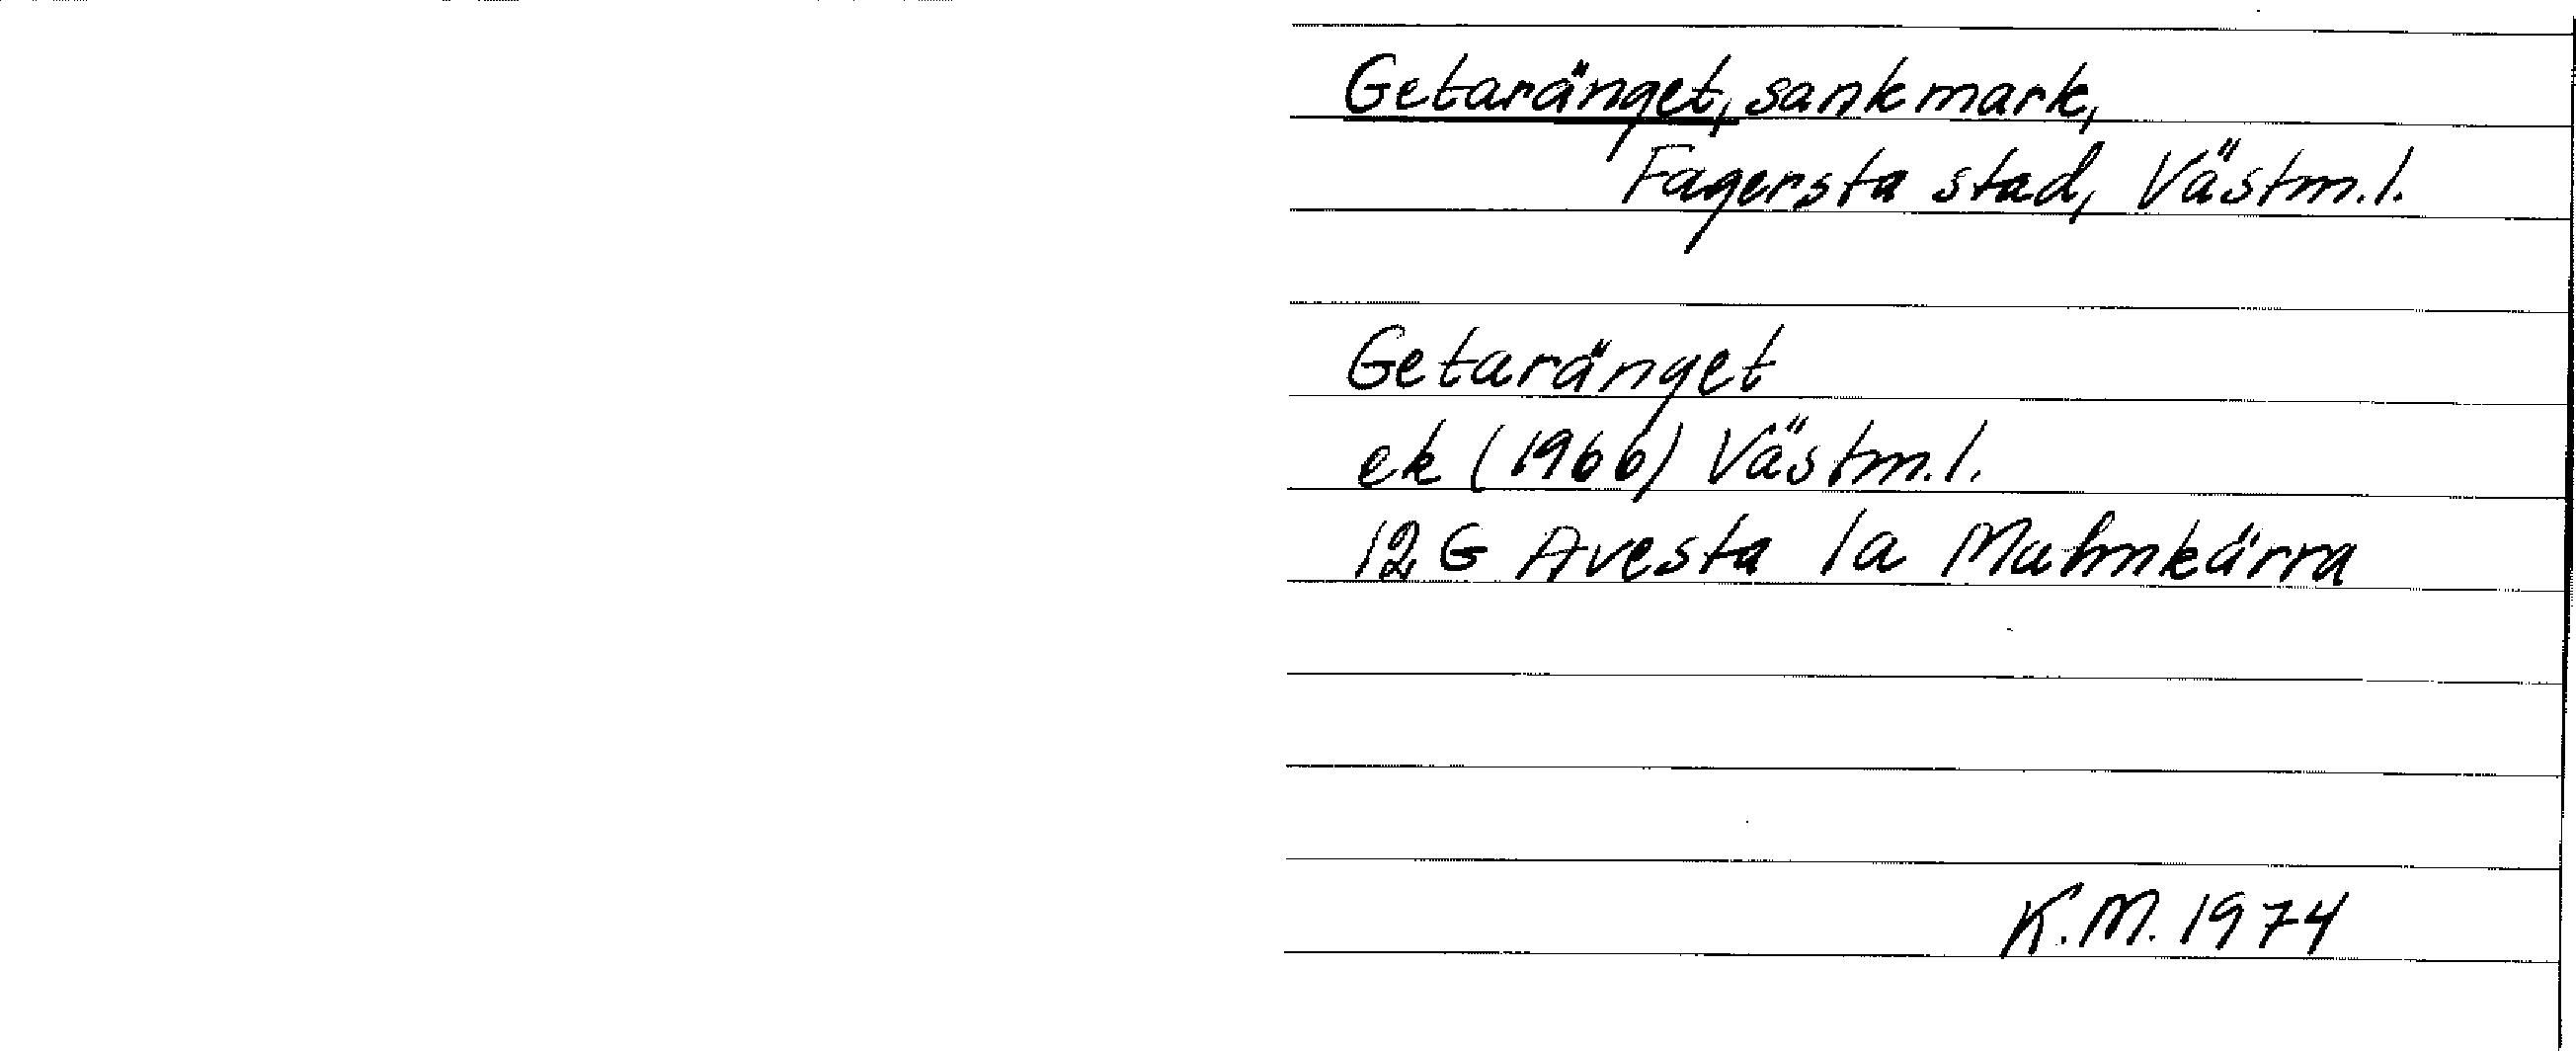 Getaränget, sankmark,
Fagersta stad, Västm.l.
Getaränget
ek (1966) Västm.l.
12 G Avesta 1a Malmkärra
K.M. 1974